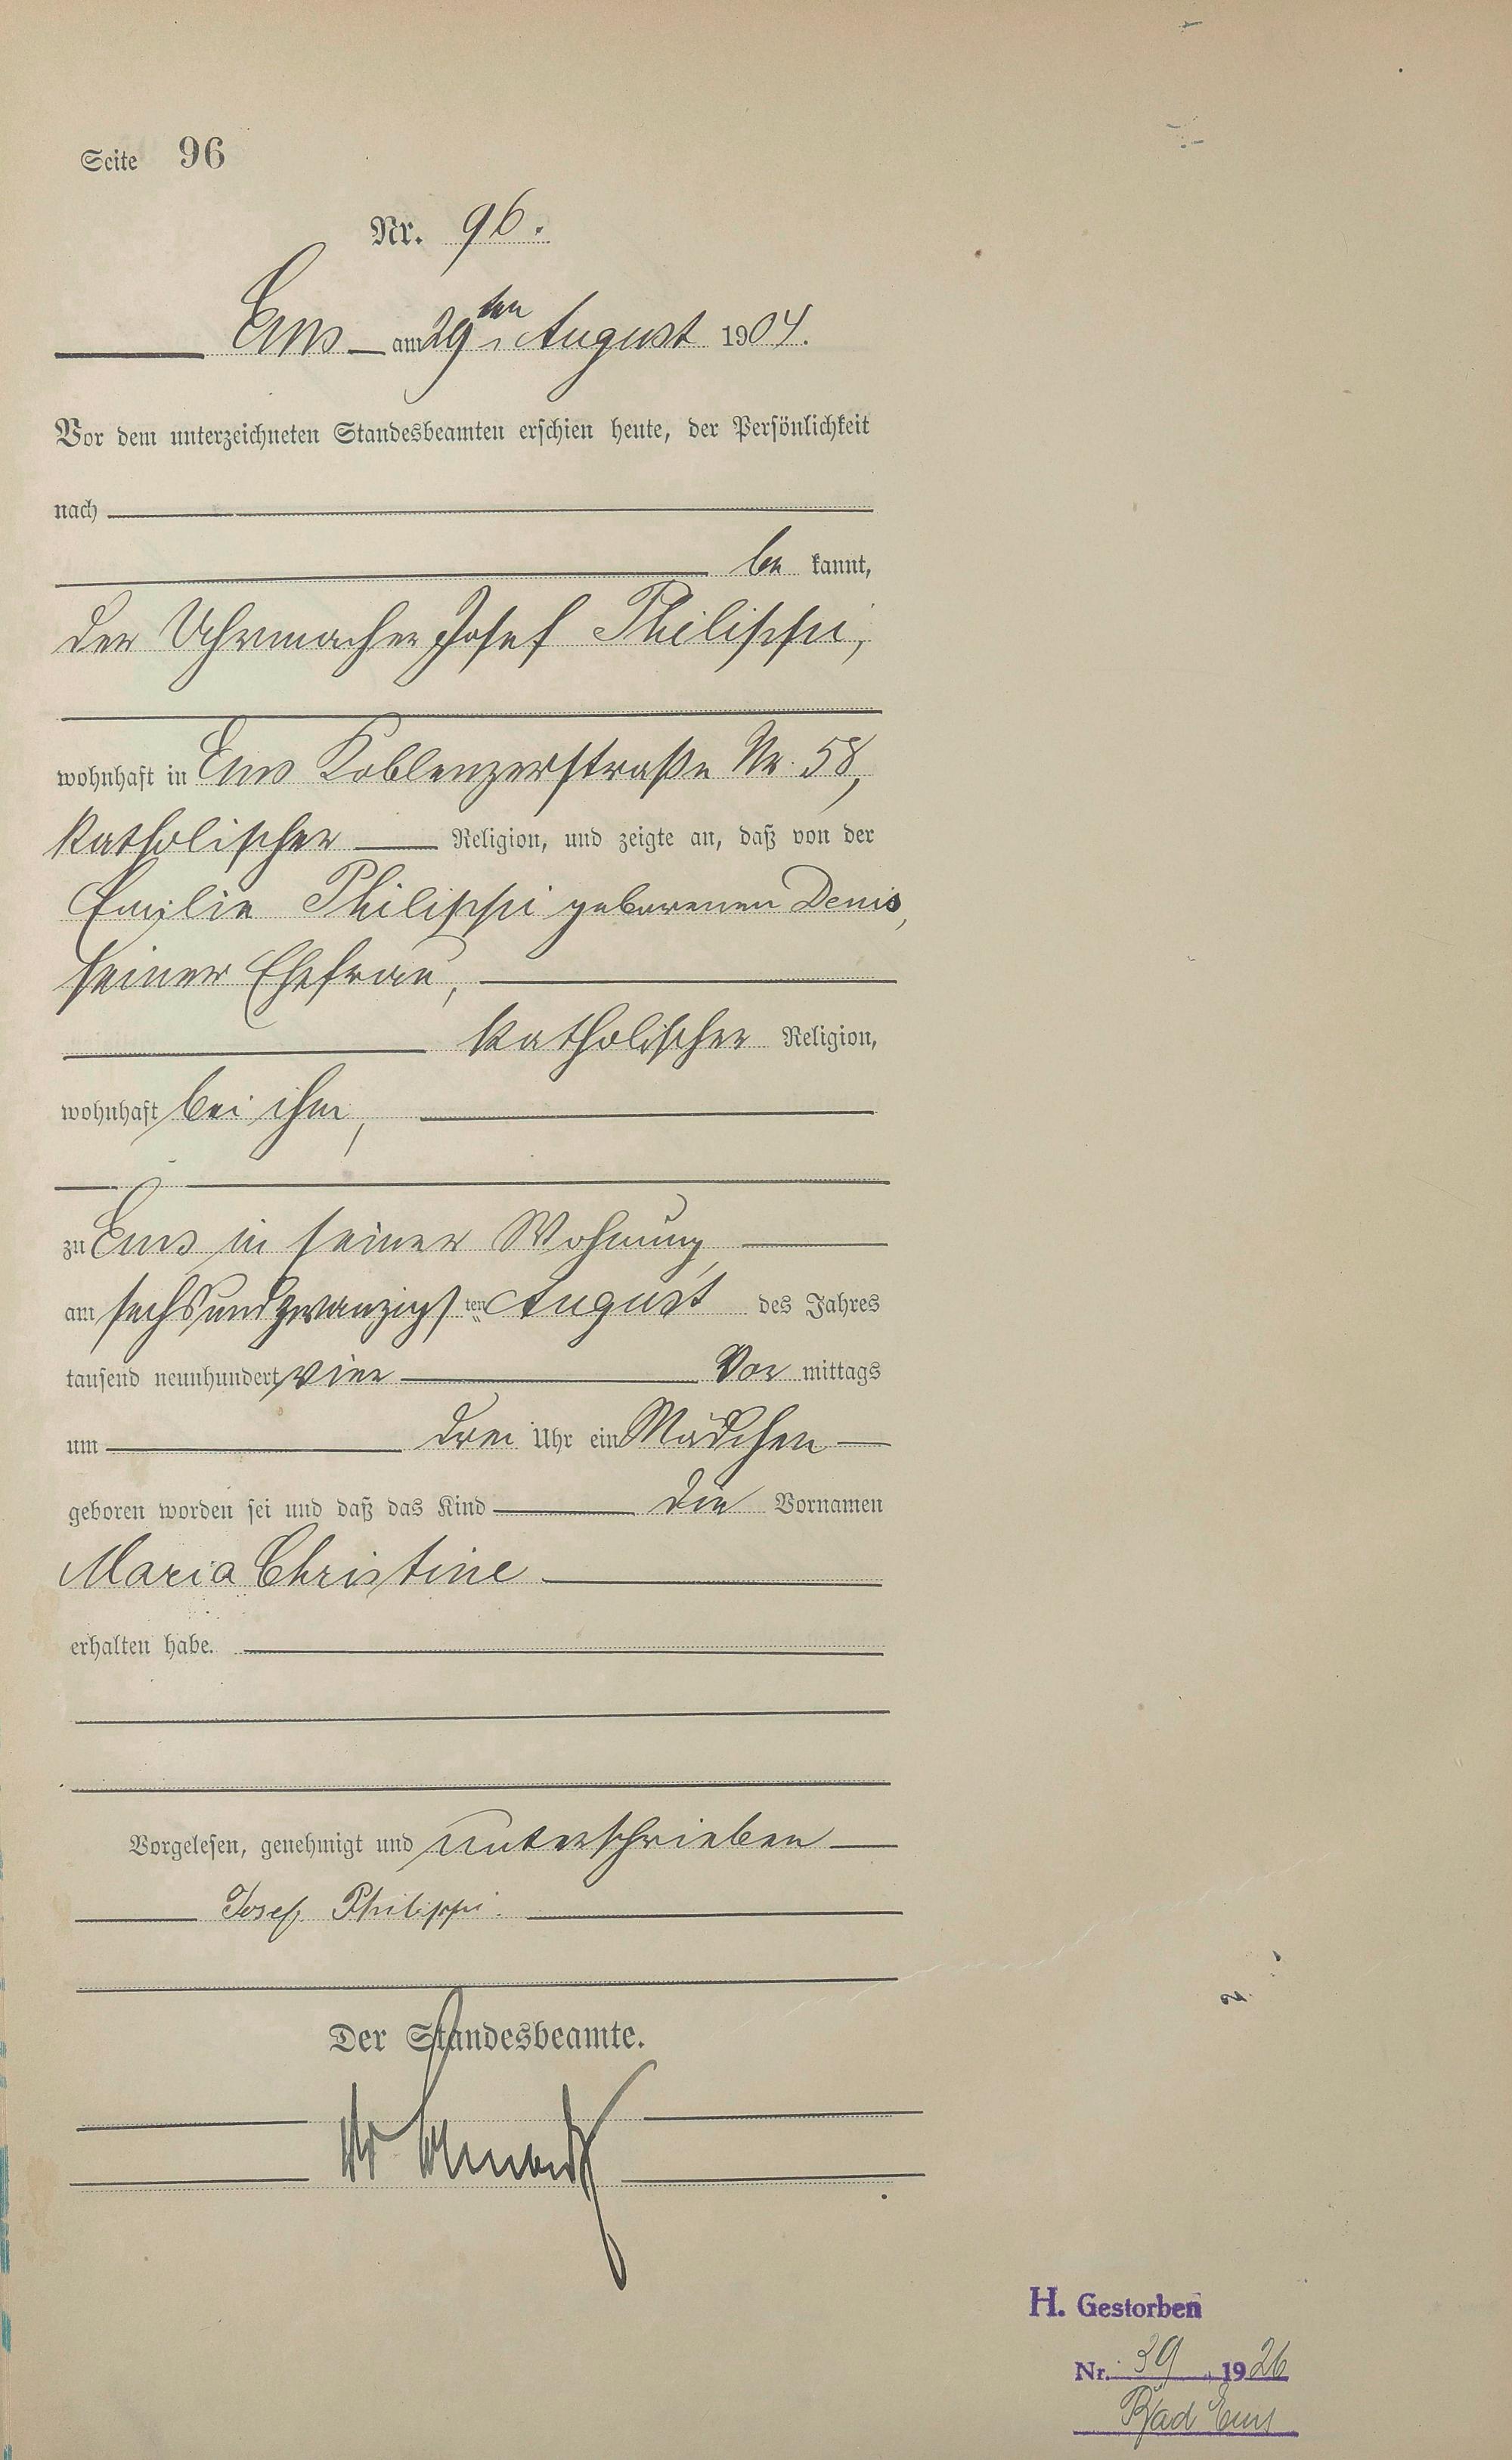 Seite 96
Nr. 96.
Ems am 29ten August 1904.
Vor dem unterzeichneten Standesbeamten erschien heute, der Persönlichkeit
nach
be kannt,
der Uhrmacher Josef Philippi,
wohnhaft in Ems Koblenzerstraße Nr. 58,
katholischer Religion, und zeigte an, daß von der
Emilie Philippi geborenen Denis,
seiner Ehefrau,
katholischer Religion,
wohnhaft bei ihm,
zu Ems in seiner Wohnung,
am sechsundzwanzigsten August des Jahres
tausend neunhundert vier Vor mittags
um drei Uhr ein Mädchen
geboren worden sei und daß das Kind die Vornamen
Maria Christine
erhalten habe.
Vorgelesen, genehmigt und unterschrieben
Josef Philippi.
Der Standesbeamte.
H. Gestorben
Nr. 39 1926
Bad Ems